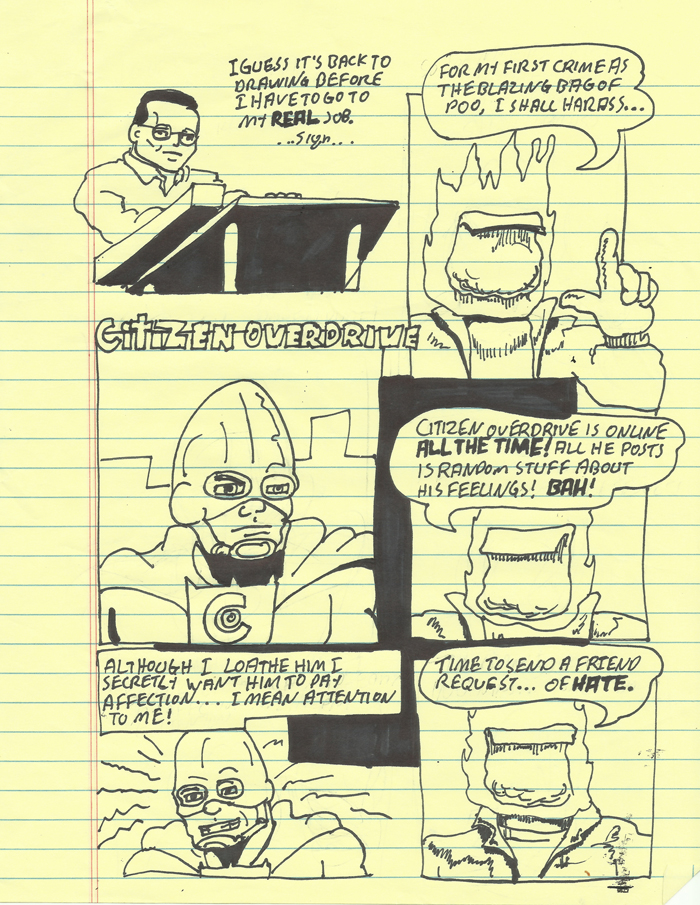 I GUESS IT'S BACK TO
DRAWING BEFORE
I HAVE TO GO TO
MY REAL JOB.
...Sign...
FOR MY FIRST CRIME AS
THE BLAZING BAG OF
POO, I SHALL HARASS...
CITIZEN OVERDRIVE
C
CITIZEN OVERDRIVE IS ONLINE
ALL THE TIME! ALL HE POSTS
IS RANDOM STUFF ABOUT
HIS FEELINGS! BAH!
ALTHOUGH I LOATHE HIM I
SECRETLY WANT HIM TO PAY
AFFECTION... I MEAN ATTENTION
TO ME!
TIME TO SEND A FRIEND
REQUEST... OF HATE.